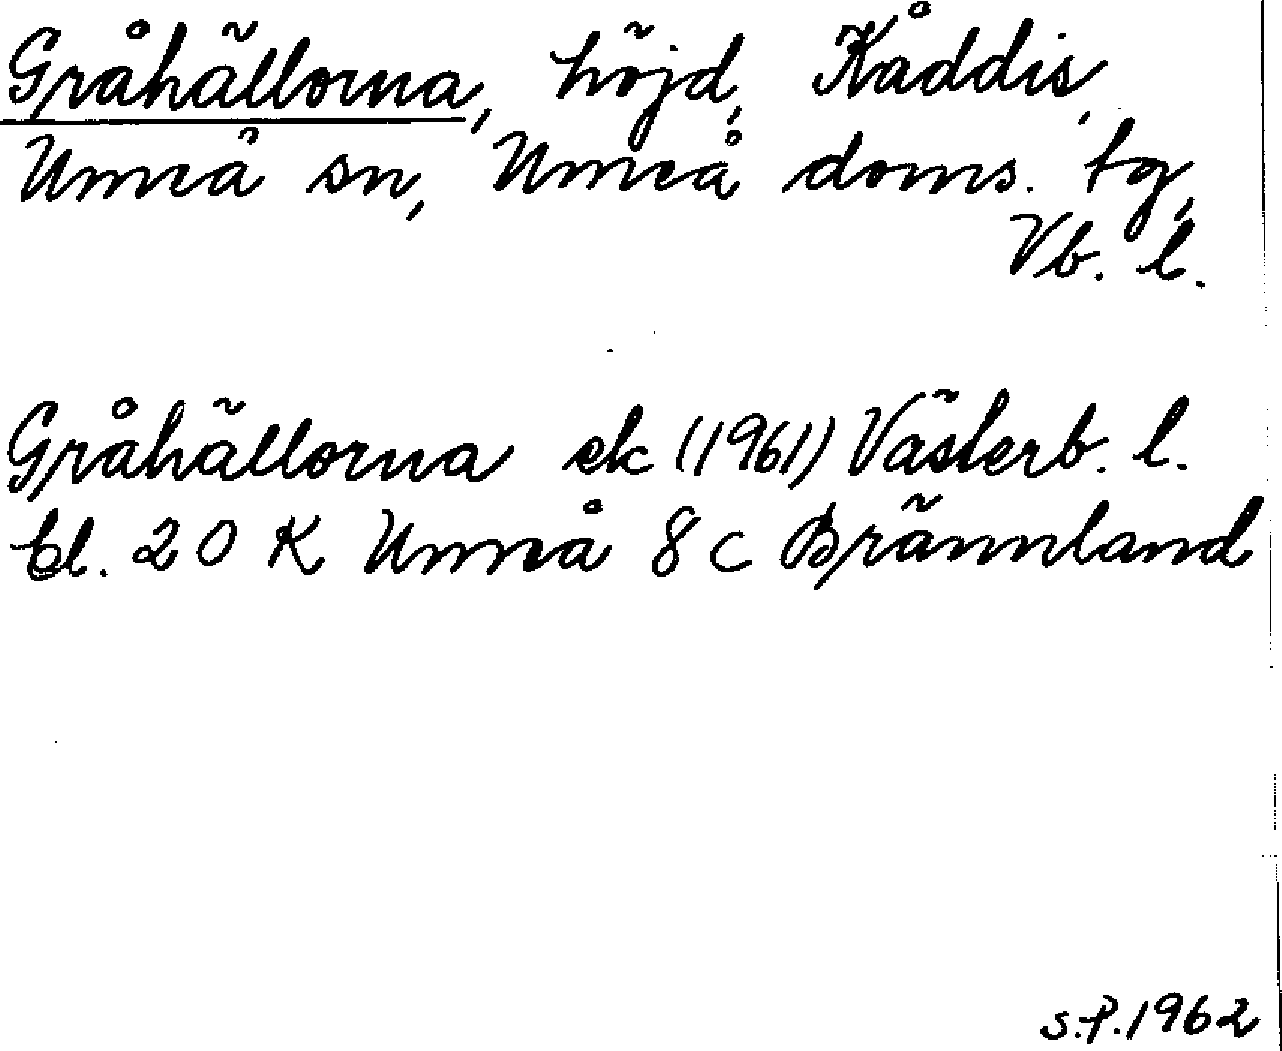 Gråhällorna, höjd, Kåddis,
Umeå sn, Umeå doms. tg,
Vb. l.
Gråhällorna ek (1961) Västerb. l.
bl. 20 K Umeå 8 c Brännland
S.P. 1962